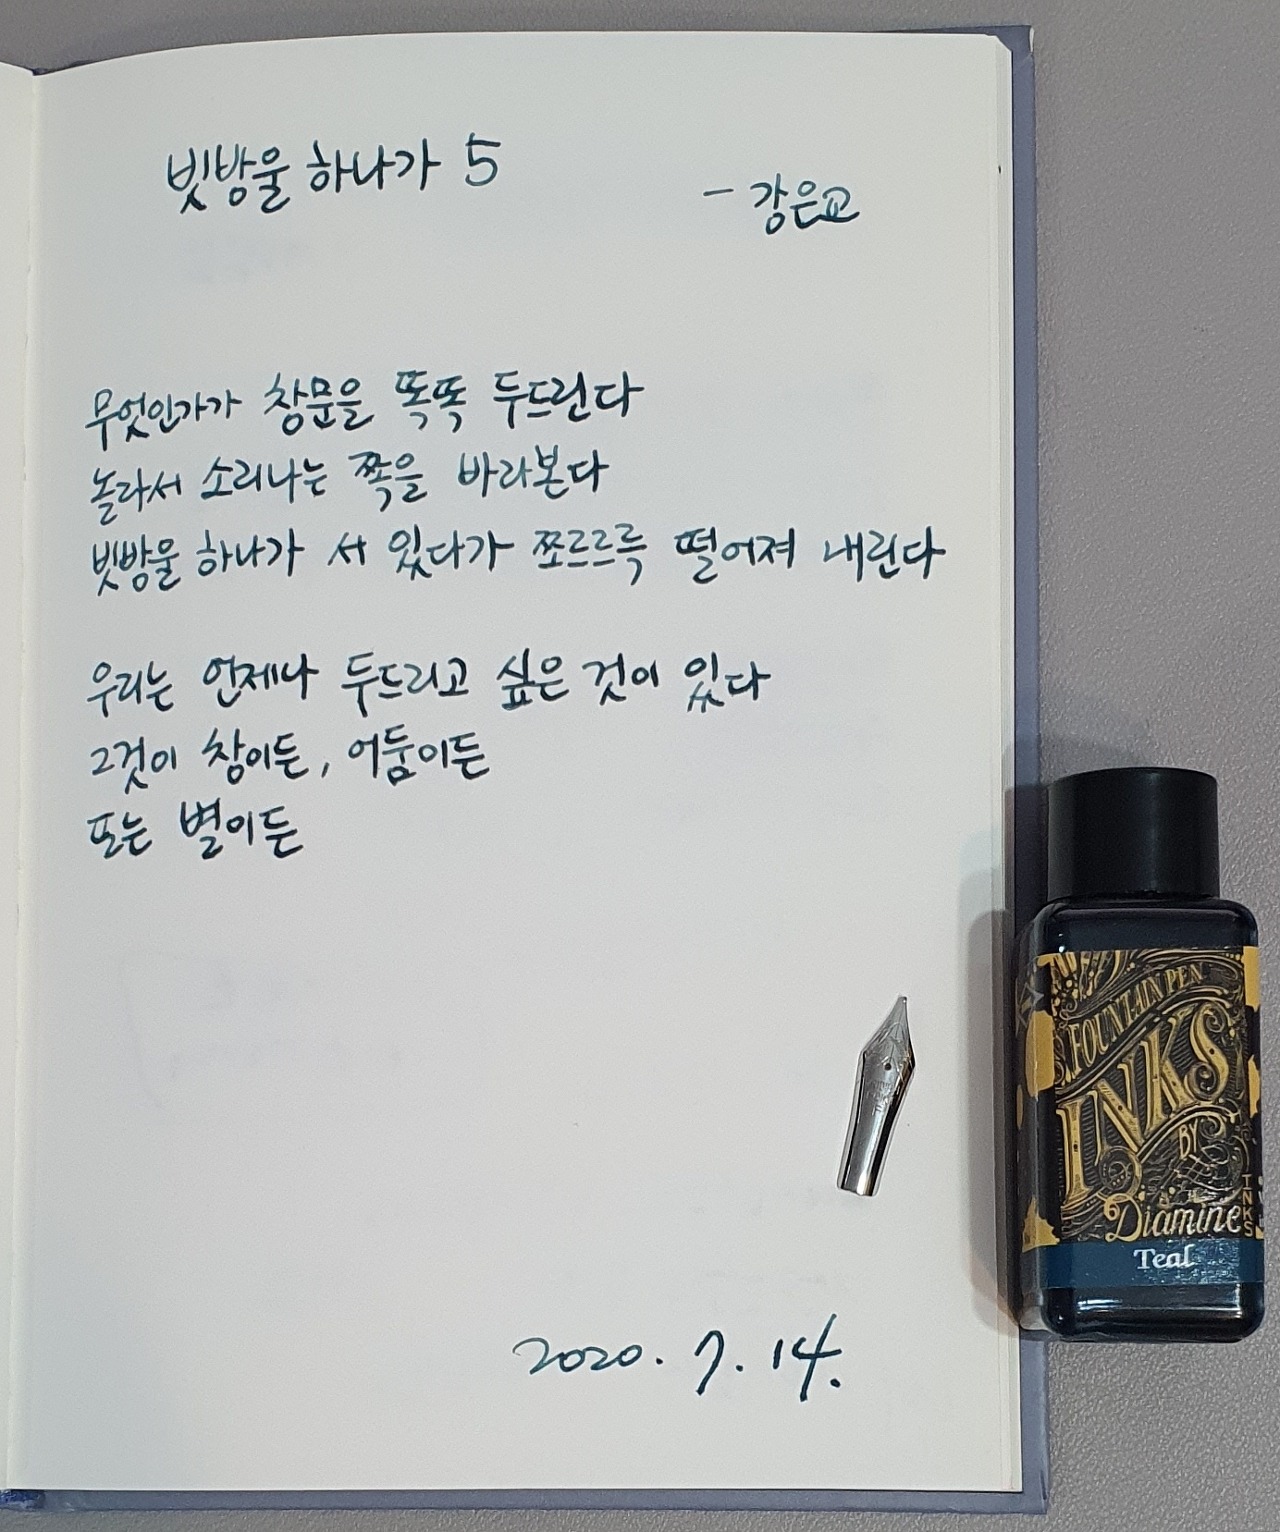 빗방울 하나가 5
- 강은교
무엇인가가 창문을 똑똑 두드린다
놀라서 소리나는 쪽을 바라본다
빗방울 하나가 서 있다가 쪼르르륵 떨어져 내린다
우리는 언제나 두드리고 싶은 것이 있다
그것이 창이든, 어둠이든
또는 별이든
2020. 7. 14.
FOUNTAIN PEN
INKS
BY
Diamine
INKS
Teal